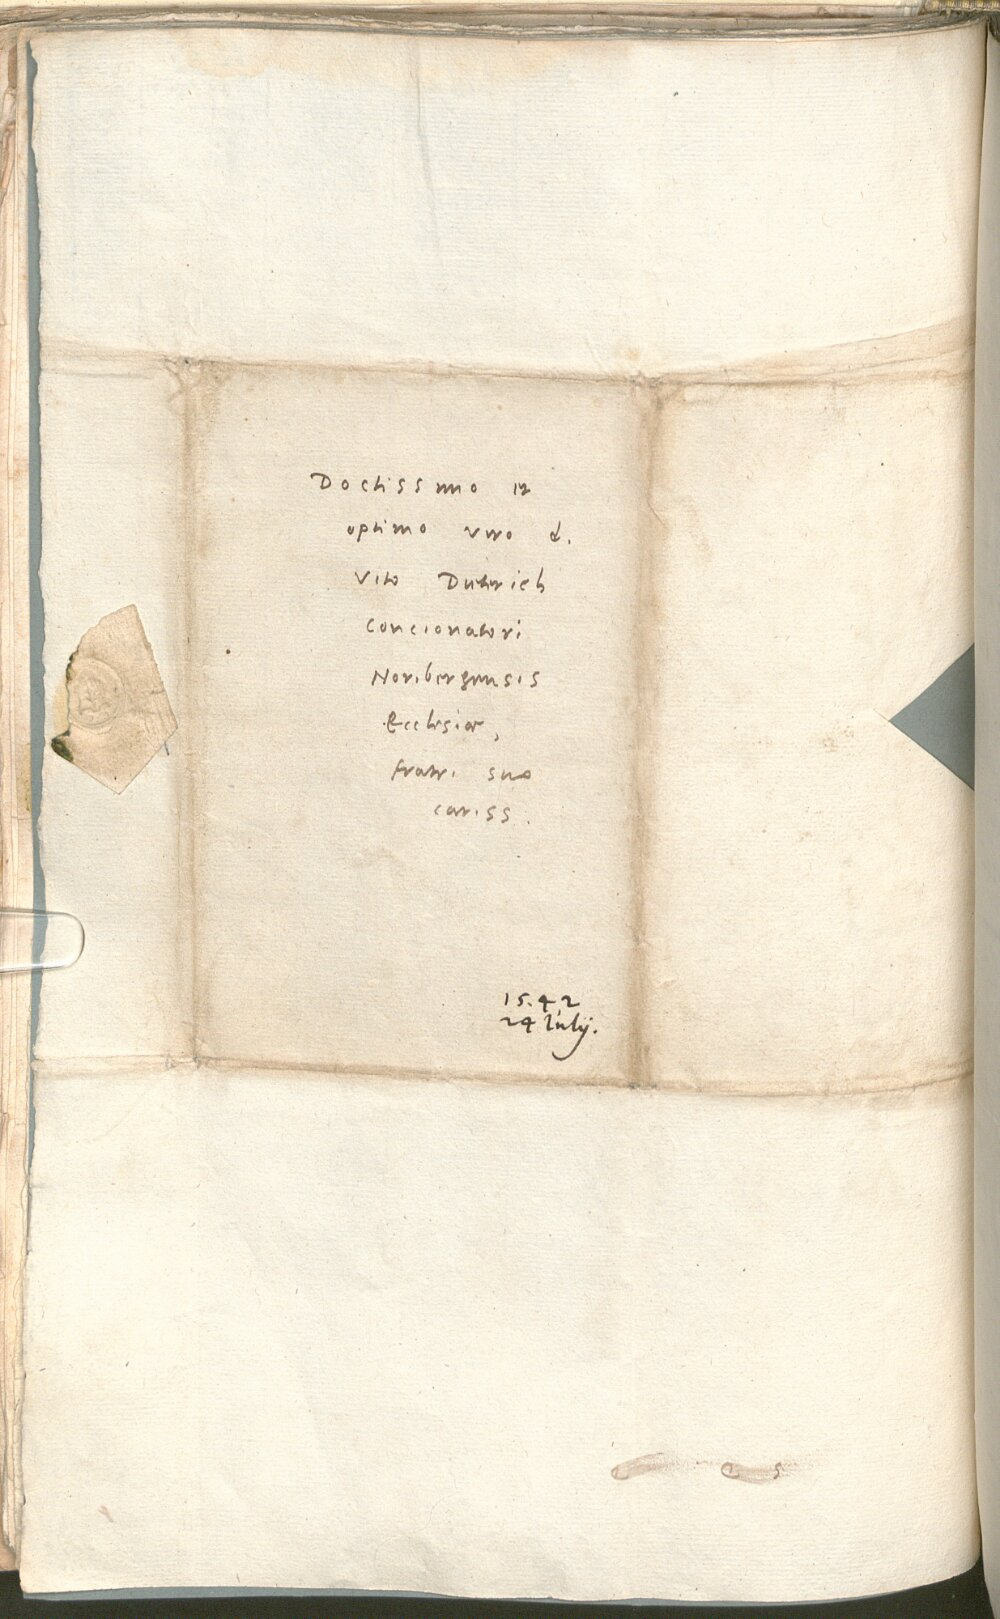 Doctissimo et
optimo viro d.
Vito Dieterich
concionatori
Noribergensis
Ecclesiæ,
fratri suo
cariss.
15.42
24 Iulij.